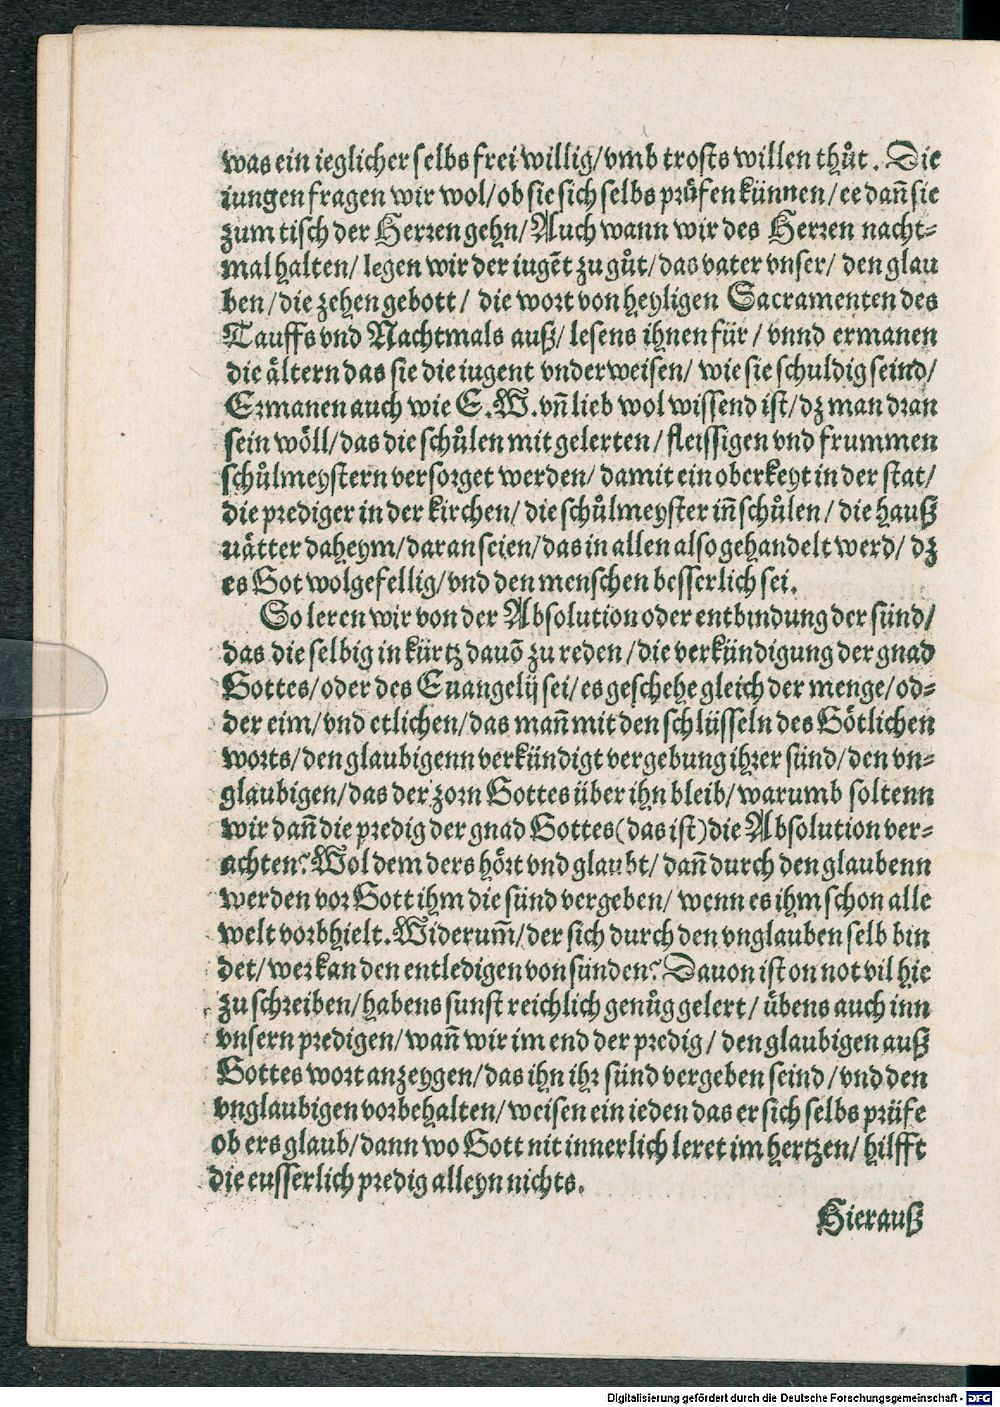 was ein ieglicher selbs frei willig/ vmb trosts willen thůt. Die
iungen fragen wir wol/ ob sie sich selbs prüfen künnen/ ee dañ sie
zum tisch der Herren gehn/ Auch wann wir des Herren nacht=
mal halten/ legen wir der iugēt zu gůt/ das vater vnser/ den glau
ben/ die zehen gebott/ die wort von heyligen Sacramenten des
Tauffs vnd Nachtmals auß/ lesens ihnen für/ vnnd ermanen
die ältern das sie die iugent vnderweisen/ wie sie schuldig seind/
Ermanen auch wie E.W. vñ lieb wol wissend ist/ dz man dran
sein wöll/ das die schůlen mit gelerten/ fleissigen vnd frummen
schůlmeystern versorget werden/ damit ein oberkeyt in der stat/
die prediger in der kirchen/ die schůlmeyster iñ schůlen/ die hauß
uätter daheym/ daran seien/ das in allen also gehandelt werd/ dz
es Got wolgefellig/ vnd den menschen besserlich sei.
So leren wir von der Absolution oder entbindung der sünd/
das die selbig in kürtz dauō zu reden/ die verkündigung der gnad
Gottes/ oder des Euangelij sei/ es geschehe gleich der menge/ od=
der eim/ vnd etlichen/ das mañ mit den schlüsseln des Götlichen
worts/ den glaubigenn verkündigt vergebung ihrer sünd/ den vn=
glaubigen/ das der zorn Gottes über ihn bleib/ warumb soltenn
wir dañ die predig der gnad Gottes (das ist) die Absolution ver=
achten? Wol dem ders hört vnd glaubt/ dañ durch den glaubenn
werden vor Gott ihm die sünd vergeben/ wenn es ihm schon alle
welt vorbhielt. Widerum̃/ der sich durch den vnglauben selb bin
det/ wer kan den entledigen von sünden? Dauon ist on not vil hie
zu schreiben/ habens sunst reichlich genůg gelert/ übens auch inn
vnsern predigen/ wañ wir im end der predig/ den glaubigen auß
Gottes wort anzeygen/ das ihn ihr sünd vergeben seind/ vnd den
vnglaubigen vorbehalten/ weisen ein ieden das er sich selbs prüfe
ob ers glaub/ dann wo Gott nit innerlich leret im hertzen/ hilfft
die eusserlich predig alleyn nichts.
Hierauß
Digitalisierung gefördert durch die Deutsche Forschungsgemeinschaft - DFG